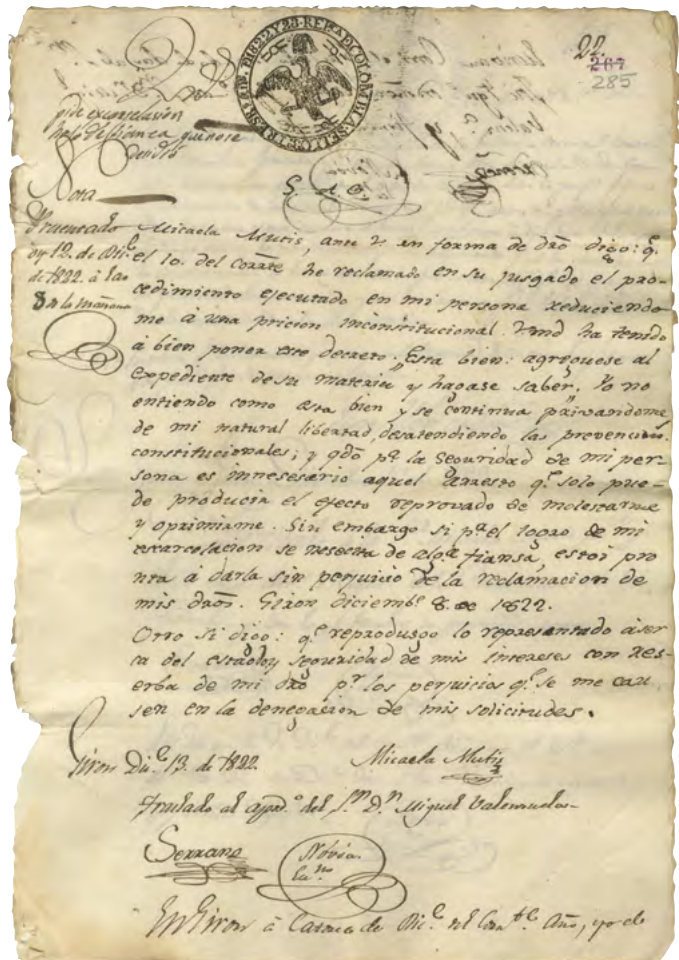 22.
267
285
pide excarcelasion
bajo de fianza que nose
Nota
S. A. O.
Presentado
oy 12. de Dic.e
de 1822. à las
8 de la mañana
Micaela Mutis, ante V. en forma de dro digo: q.e
el 10. del Corr.te he reclamado en su jusgado el pro-
cedimiento ejecutado en mi persona reduciendo
me à una pricion inconstitucional. Vmd ha tenido
à bien poner este decreto: "Esta bien: agreguese al
expediente de su materia y hagase saber." Yo no
entiendo como esta bien y se continua privandome
de mi natural libertad, desatendiendo las prevencion.s
constitucionales; y qdo p.a la seguridad de mi per-
sona es innesesario aquel arresto q.e solo pue-
de producir el efecto reprovado de molestarme
y oprimirme. Sin embargo si p.a el logro de mi
excarcelacion se nesecita de alg.a fiansa, estoi pro
nta à darla sin perjuicio de la reclamacion de
mis dros. Giron diciemb.e 8. de 1822.
Otro si digo: q.e reprodusgo lo representado àser
ca del estado y seguridad de mis intereses con res-
erba de mi dro p.r los perjuicios q.e se me cau
sen en la denegacion de mis solicitudes.
Giron Dic.e 13. de 1822.
Micaela Mutis
Traslado al apod.o del S.or D.n Miguel Valenzuela-
Serrano
Novòa
En Giron à Catorce de Dic.e del Corr.te Año, yo el